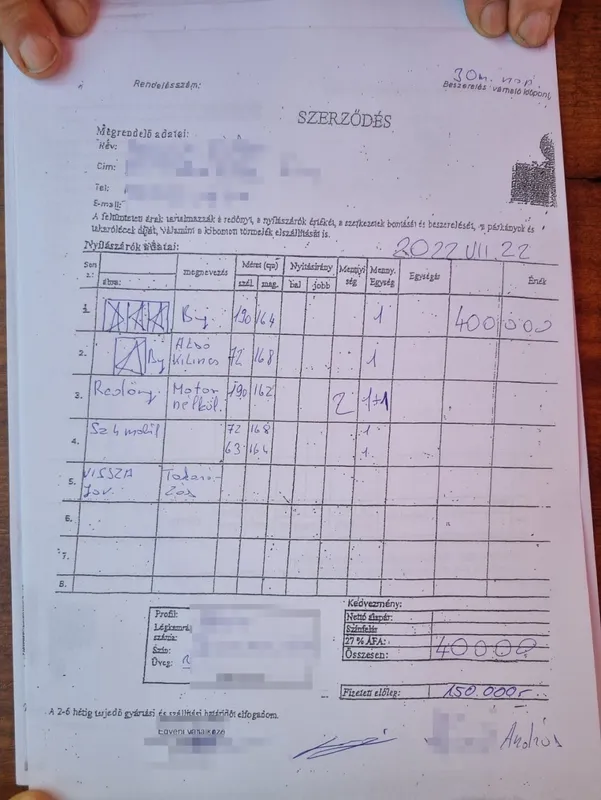 30 m. nap.
Rendelésszám:
Beszerelés várható időpont
SZERZŐDÉS
Megrendelő adatai:
Név:
Cím:
Tel:
E-mail:
A feltüntetett árak tartalmazzák a redőnyt, a nyílászárók értékét, a szerkezetek bontását és beszerelését, a párkányok és
takarólécek díját, valamint a kibontott törmelék elszállítását is.
Nyílászárók adatai:
2022 VII. 22
megnevezés Méret (cm) Nyitásirány Mennyi ség Menny. Egység Egységár Érték
ábra: szél mag. bal jobb
1. By 190 164 1 400000
2. By Alsó Kilincs 72 168 1
3. Redőny Motor nélkül. 190 162 2 1+1
4. Szh mobil 72 168 1
63 164 1
5. VISSZA Jav. Takarí Zás
6.
7.
8.
Profil:
Szín:
Üveg:
Kedvezmény:
Nettó alapár:
Színfelár
27 % ÁFA:
Összesen: 400000
Fizetett előleg: 150.000
A 2-6 hétig terjedő gyártási és szállítási határidőt elfogadom.
Egyéni vállalkozó
András